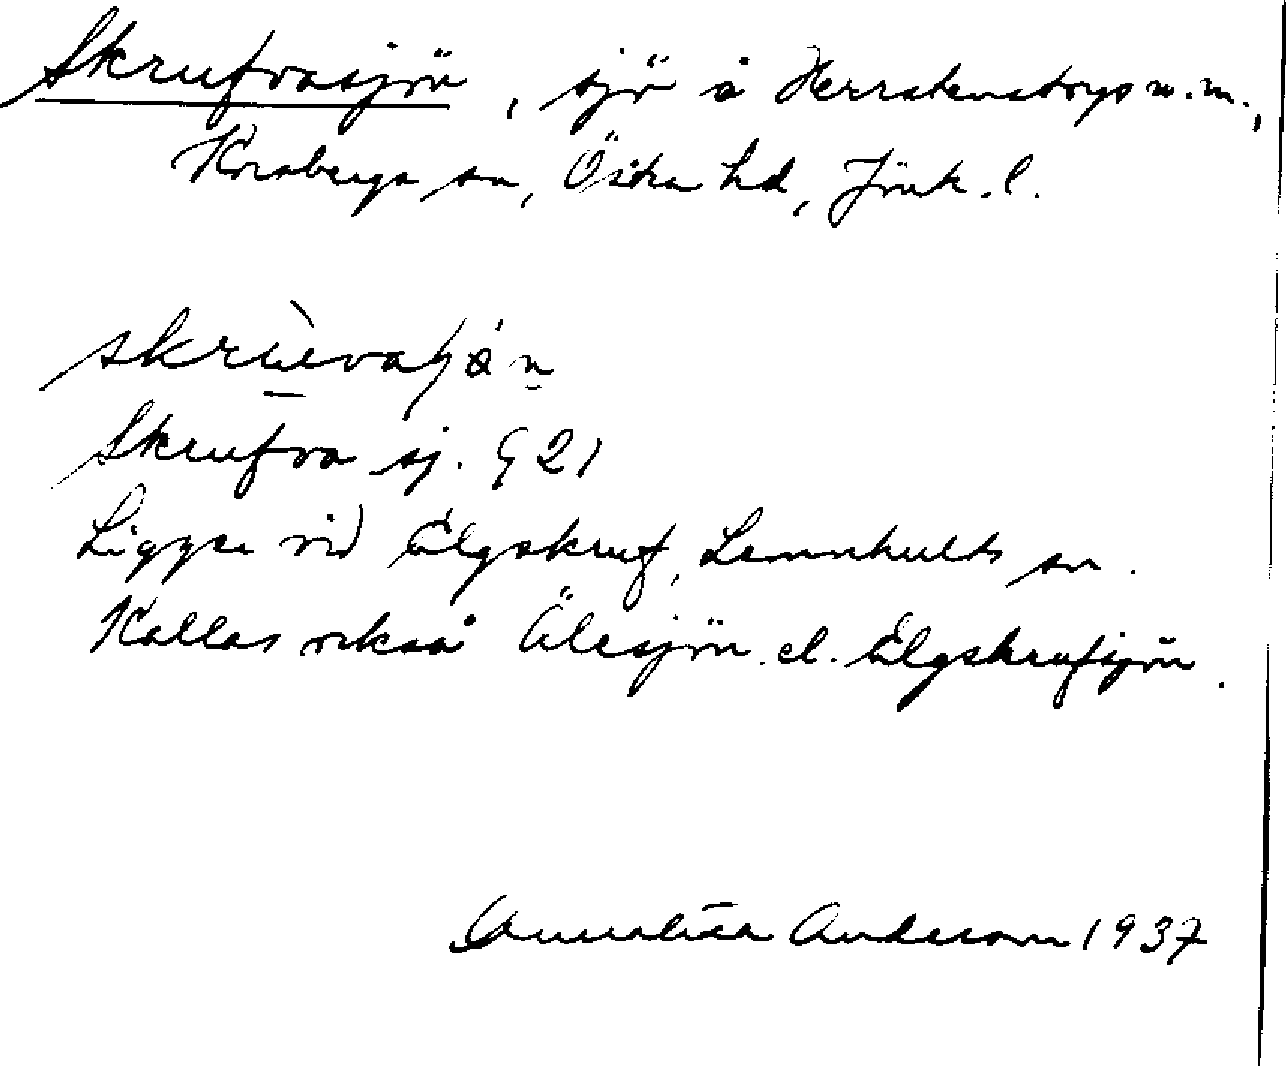 Skrufvasjön, sjö å Herrstenstorps m.m.,
Korsberga sn, Östra hd, Jönk. l.
Skrufva sj. G 21
Ligger vid Älgskruf, Lemnhults sn.
Kallas också Älesjön el. Älgskrufsjön.
Annalisa Anderson 1937